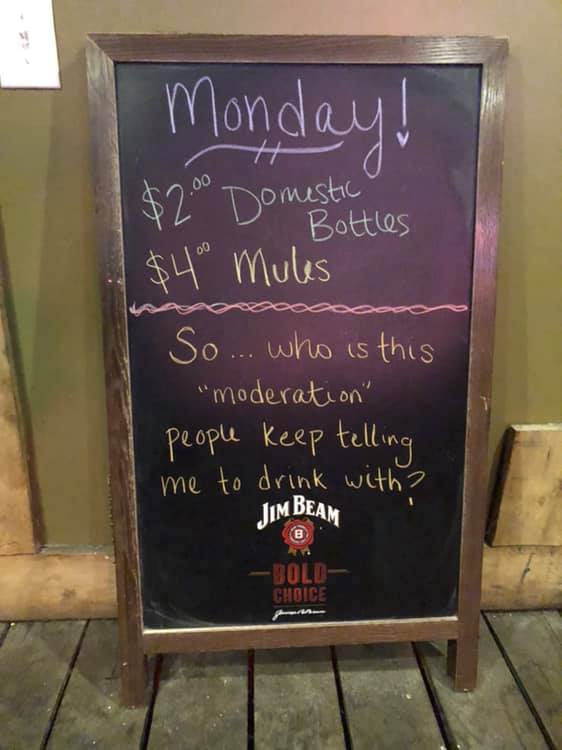 Monday!
$2.00 Domestic
Bottles
$4.00 Mules
So... who is this
"moderation"
people keep telling
me to drink with?
JIM BEAM
B
BOLD
CHOICE